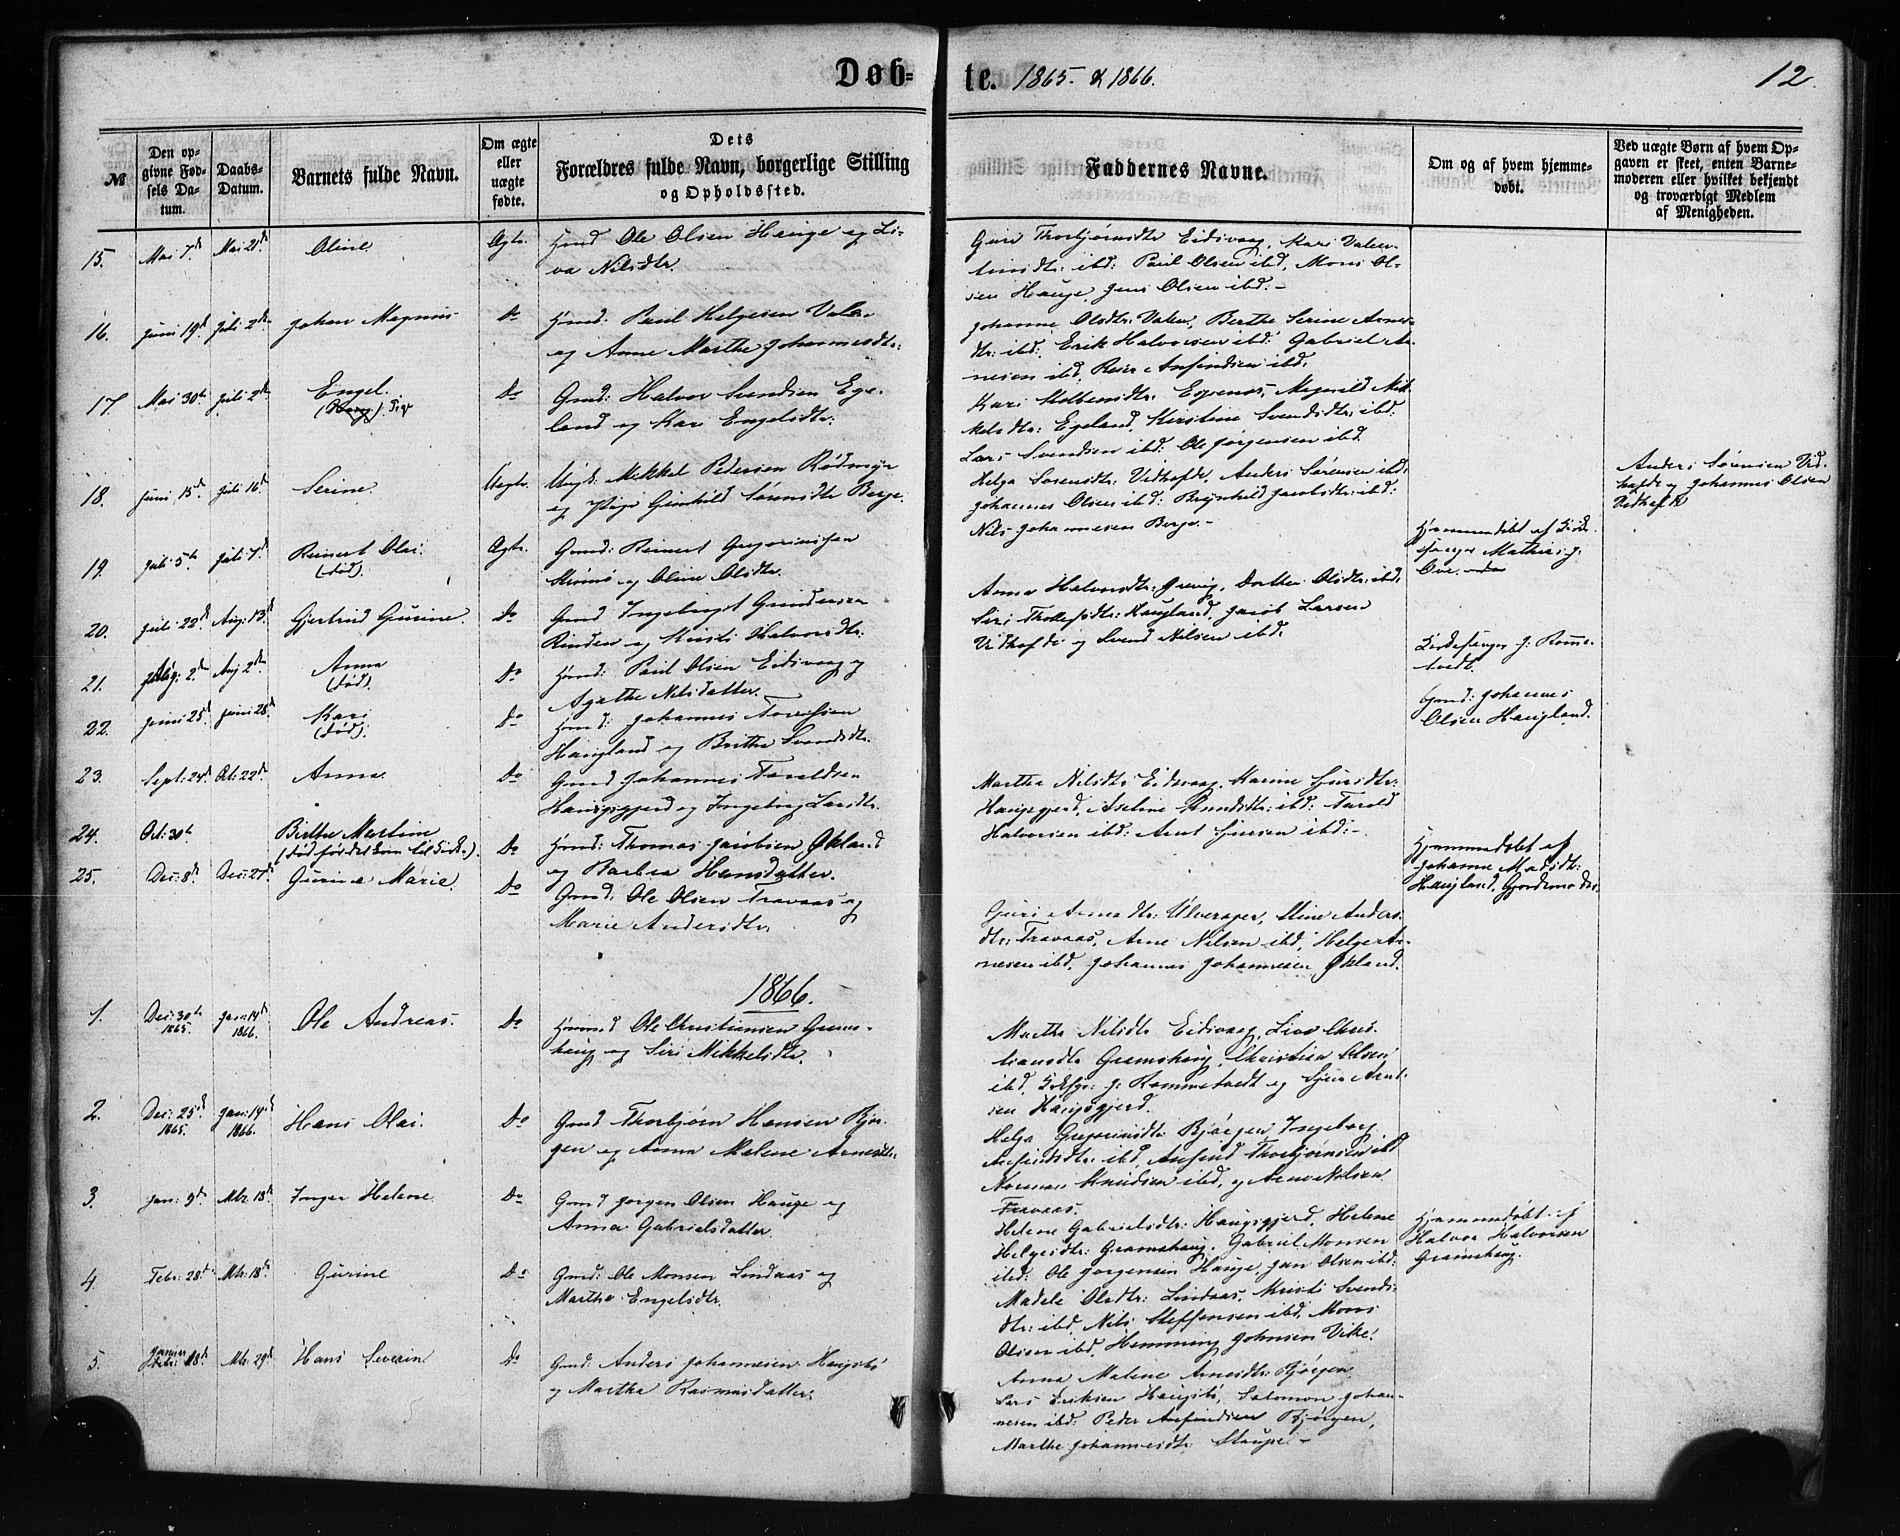 Døb-
te. 1865. & 1866.
12.
№
Den op-
givne Fød-
sels Da-
tum.
Daabs-
Datum.
Barnets fulde Navn.
Om ægte
eller
uægte
fødte.
Dets
Forældres fulde Navn, borgerlige Stilling
og Opholdssted.
Faddernes Navne.
Om og af hvem hjemme-
døbt.
Ved uægte Børn af hvem Op-
gaven er skeet, enten Barne-
moderen eller hvilket bekjendt
og troværdigt Medlem
af Menigheden.
15.
Mai 7de
Mai 21de
Oline
Ægte
Hmd Ole Olsen Hauge og Li-
va Nilsdtr.
Guri Thorbjørnsdtr Eidsvaag, Kari Valen-
tinsdtr: ibd: Paul Olsen ibd, Mons Ol-
sen Hauge, Jens Olsen ibd.-
16.
Juni 19de
Juli 2den
Johan Magnus
Do
Hmd: Paul Helgesen Valen
og Anne Marthe Johannesdtr:
Johanne Olsdtr: Valen, Berthe Serine Arnes-
dtr: ibd: Erik Halvorsen ibd: Gabriel Ar-
nesen ibd, Reier Anfindsen ibd.
17.
Mai 30te
Juli 2den
Engel.
Pige
Do
Gmd: Halvor Svendsen Ege-
land og Kari Engelsdtr.
Kari Espenes, Magnild Mik-
kelsdtr: Egeland, Kirstine Svendsdtr: ibd:
Lars Svendsen ibd: Ole Jørgensen ibd.
18.
Juni 15de
Juli 16de
Serine.
Uægte.
Ungk: Mikkel Pedersen Rødmyr
og Pige Gunhild Sørensdtr Berge.
Helga Sørensdtr: Vedhafde, Anders Sørensen ibd:
Johannes Olsen ibd: Brynhild Jacobsdtr: ibd:
Nils Johannesen Berge.-
Anders Sørensen Ved-
hafde og Johannes Olsen
Vedhafde
19.
Juli 5te
Juli 7de
Reinert Olai.
(død).
Ægte.
Gmd: Reinert Gregoriussen
Strømø og Oline Olsdtr.
Hjemmedøbt af Kirke-
sanger Mathias J.
20.
Juli 22de
Aug: 13de
Gjertrud Gurine.
Do
Gmd Ingebrigt Gundersen
Rinden og Kirsti Halvorsdtr:
Anna Halvorsdtr: Dorthea Olsdtr: ibd,
Siri Thollefsdtr: Haugland, Jacob Larsen
Vedhafde og Svend Nilsen ibd.
21.
Aug: 2den
Anna
(død).
Do
Hmd: Paul Olsen Eidsvaag og
Agathe Nilsdatter.
Kirkesanger J: Romme-
tvedt.
22.
Juni 25de
Juni 28de
Kari
(død).
Do
Hmd: Johannes
Haugland og Brithe Svendsdtr.
Gmd: Johannes
Olsen Haugland.
23.
Sept: 24de
Oct: 22de
Anna
Do
Gmd Johannes Taraldsen
Haugsgjerd og Ingeborg Larsdtr.
Martha Nilsdtr Eidsvaag, Karine Sjursdtr:
Haugsgjerd, Aseline Knudsdtr: ibd: Tarald
Halvorsen ibd: Arnt Sjursen ibd:-
24.
Oct: 30te
Birthe Martine
(død før det kom til Kirke).
Do
Hmd: Thomas Jacobsen Økland
og Barbra Hansdatter.
Hjemmedøbt af
Johanne Madsdtr:
Haugland, Gjordemoder.
25.
Dec: 8de
Dec: 27de
Gurine Marie.
Do
Gmd: Ole Olsen Travaas og
Marie Andersdtr.
Guri Arnesdtr: Ulverager, Stine Anders-
dtr: Travaas, Arne Nilsen ibd, Helge Ar-
nesen ibd, Johannes Johannesen Økland.
1866.
1.
Dec: 30te
1865.
Jan: 14de
1866.
Ole Andreas.
Do
Hmd Ole Christiansen Grams-
haug og Siri Mikkelsdtr.
Martha Nilsdtr Eidsvaag, Liva Chris-
tiansdtr Gramshaug, Christian Olsen
ibd, J: Rommetvedt og Sjur Arnt-
sen Haugsgjerd.
2.
Dec: 25de
1865.
Jan: 14de
1866.
Hans Olai.
Do
Gmd Thorbjørn Hansen Bjør-
gen og Anna Malene Arnesdtr.
Helga Gregoriusdtr: Bjørgen, Ingeborg
Anfindsdtr: ibd, Anfind Thorbjørnsen ibd
Norman Knudsen ibd, og Arne Nilsen
Travaas.
3.
Jan: 9de
Mts: 18de
Inger Helene
Do
Gmd Jørgen Olsen Hauge og
Anna Gabrielsdatter.
Helene Gabrielsdtr: Haugsgjerd, Helene
Helgesdtr: Gramshaug, Gabriel Monsen
ibd: Ole Jørgensen Hauge, Jan Olsen ibd:
Hjemmedøbt af
Halvor Halvorsen
Gramshaug.
4.
Febr: 28de
Mts: 18de
Gurine
Do
Gmd: Ole Monsen Lindaas og
Martha Engelsdtr.
Madele Olsdtr: Lindaas, Kristi Svends-
dtr: ibd, Nils Steffensen ibd, Mons
Olsen ibd, Hemming Johnsen Vike.
5.
Januar 18de
Mts: 29de
Hans Severin
Do
Gmd: Anders Johannesen Haugsbø
og Martha Rasmusdatter.
Anna Malene Arnesdtr: Bjørgen,
Lars Eriksen Haugsbø, Salomon Johan-
nesen ibd: Peder Anfindsen Bjørgen,
Marthe Johannesdtr: Staupe.-